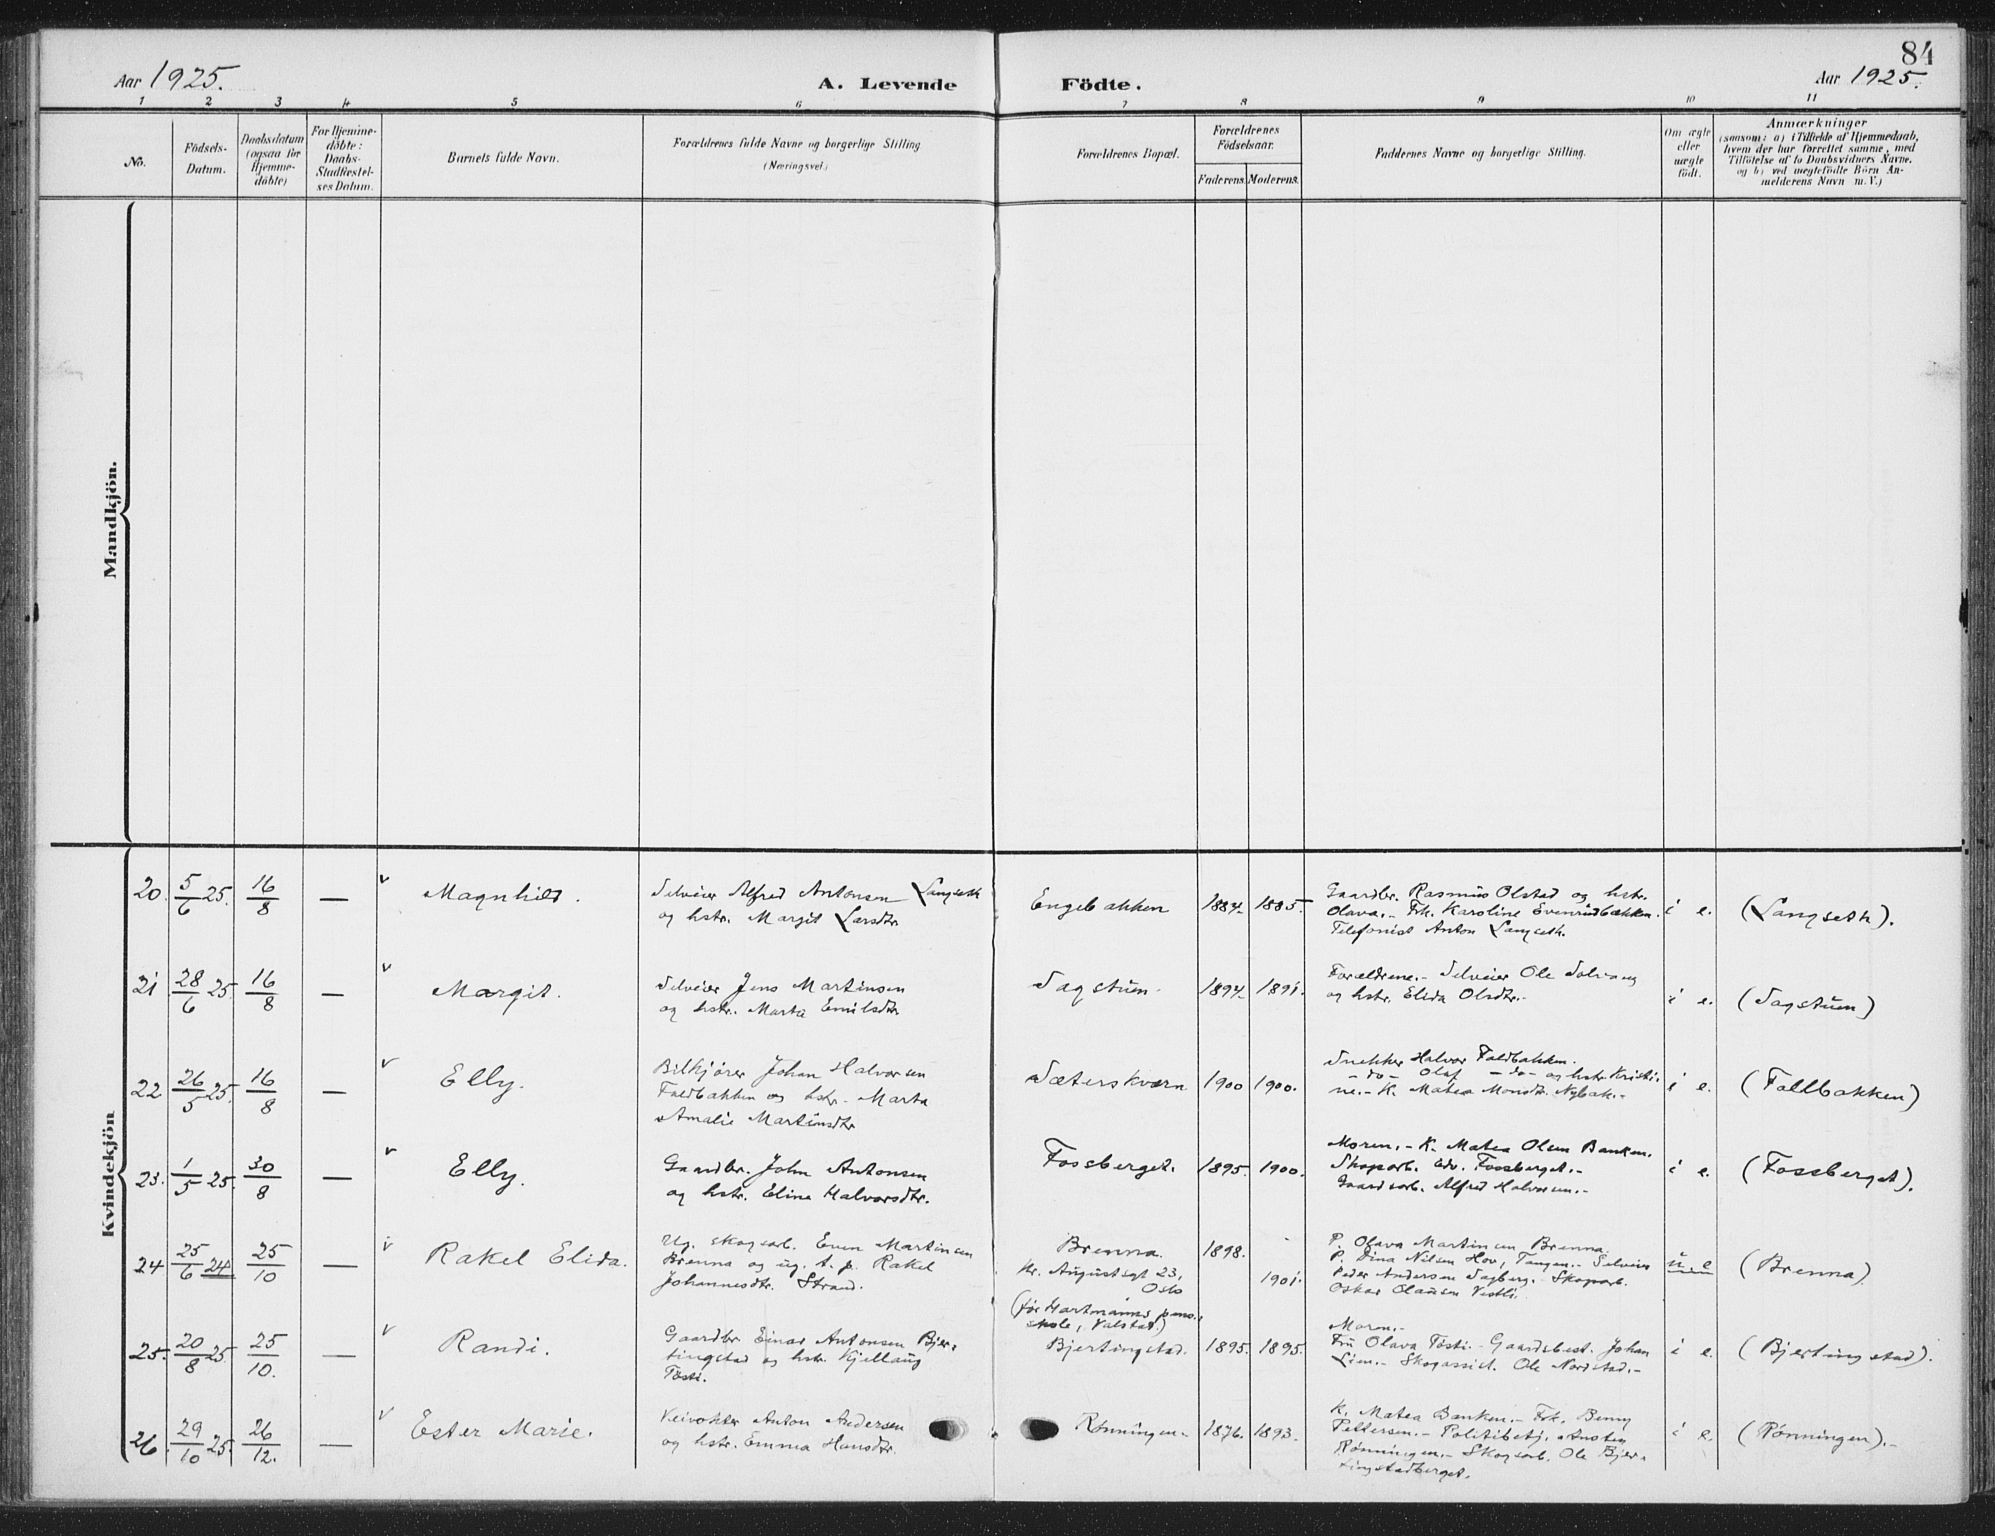 84
Aar 1925.
A. Levende Födte.
Aar 1925.
1 2 3 4 5 6 7 8 9 10 11
No.
Födsels-
Datum.
Daabsdatum
(ogsaa for
Hjemme-
döbte)
For Hjemme-
döbte:
Daabs-
Stadfæstel-
ses Datum.
Barnets fulde Navn.
Forældrenes fulde Navne og borgerlige Stilling
(Næringsvei.)
Forældrenes Bopæl.
Forældrenes
Födselsaar.
Faderens. Moderens.
Faddernes Navne og borgerlige Stilling.
Om ægte
eller
uægte
födt.
Anmærkninger
(saasom: a) i Tilfælde af Hjemmedaab,
hvem der har forrettet samme, med
Tilföielse af to Daabsvidners Navne.
og b) ved uægtefödte Börn An-
melderens Navn m. V.)
Mandkjön.
Kvindekjön
20. 5/6 25. 16/8 — Magnhild.
Selveier Alfred Antonsen Langseth
og hstr. Margit Larsdtr.
Engebakken 1884. 1885.
Gaardbr. Rasmus Olstad og hstr.
Olava.- Frk. Karoline Evenrudbakken.
Telefonist Anton Langseth.
i e. (Langseth).
21 28/6 25 16/8 — Margit.
Selveier Jens Martinsen
og hstr. Marta Emilsdtr.
Sagstuen. 1894. 1891.
Forældrene.- Selveier Ole
og hstr. Elida Olsdtr.-
i e. (Sagstuen)
22 26/5 25. 16/8 — Elly.
Bilkjører Johan Halvorsen
Faldbakken og hstr. Marta
Amalie Martinsdtr.
Sæterskværn 1900 1900.
Snekker Halvor Faldbakken.
-do- Olaf -do- og hstr. Kristi-
ne.- K. Matea Monsdtr. Nybak.-
i e. (Fallbakken)
23. 1/5 25. 30/8 — Elly.
Gaardbr. John Antonsen
og hstr. Eline Halvorsdtr.
Fossberget. 1895. 1900.
Moren.- K. Matea Olsen Banken.
Skogarb. Edv. Fossberget.-
Gaardsarb. Alfred Halvorsen.-
i e. (Fossberget).
24 25/6 24 25/10 — Rakel Elida.
Ug. skogsarb. Even Martinsen
Brenna og ug. t. p. Rakel
Johannesdtr. Strand.
Brenna. 1898.
Kr. Augustsgt 23,
Oslo 1901.
(før Hartmanns pens.
skole, Valstad.)
P. Olava Martinsen Brenna.
P. Dina Nilsen Hov, Tangen.- Selveier
Peder Andersen Sagberg.- Skogarb.
Oskar Olausen Vestli.
u. e (Brenna)
25. 20/8 25. 25/10. — Randi.
Gaardbr. Einar Antonsen Bjer-
tingstad og hstr. Kjellaug
Tøsti.
Bjertingstad. 1895. 1895.
Moren.-
Fru Olava Tøsti.- Gaardsbest. Johan
Lien.- Skogassist. Ole Nordstad.-
i e. (Bjertingstad).
26. 29/10 25. 26/12. — Ester Marie.
Veivokter Anton Andersen
og hstr. Emma Hansdtr.
Rønningen. 1876. 1893.
K. Matea Banken.- Frk. Benny
Pettersen.- Politibetj. Ansten
Rønningen.- Skogsarb. Ole Bjer-
tingstadberget.
i e. (Rønningen).-